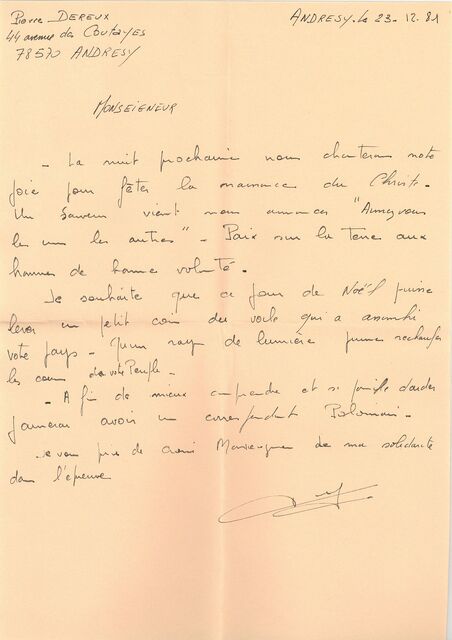 Pierre DEREUX
44 avenue des Coutayes
78570 ANDRESY
ANDRESY. le 23. 12. 81
MONSEIGNEUR
_ La nuit prochaine nous chanterons notre
joie pour fêter la naissance du Christ.
Un Sauveur vient nous annoncer "Aimez vous
les uns les autres" _ Paix sur la Terre aux
hommes de bonne volonté.
Je souhaite que ce jour de Noël puisse
lever un petit coin du voile qui a assombri
votre pays _ Qu'un rayon de lumière puisse réchauffer
les coeurs de votre Peuple _
_ A fin de mieux comprendre et si possible d'aider
j'aimerais avoir un correspondant Polonais _
Je vous prie de croire Monseigneur de ma solidarité
dans l'épreuve